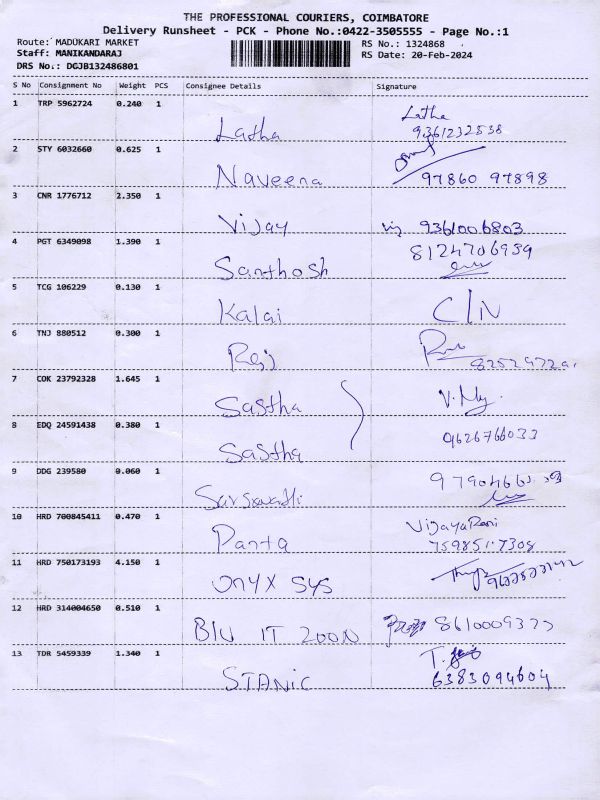 THE PROFESSIONAL COURIERS, COIMBATORE
Delivery Runsheet - PCK - Phone No.:0422-3505555 - Page No.:1
Route: MADUKARI MARKET
RS No.: 1324868
Staff: MANIKANDARAJ
RS Date: 20-Feb-2024
DRS No.: DGJB132486801
S No Consignment No Weight PCS Consignee Details Signature
1 TRP 5962724 0.240 1 Latha Latha
9361232538
2 STY 6032660 0.625 1 Naveena
97860 97898
3 CNR 1776712 2.350 1 Vijay 9361006803
4 PGT 6349098 1.390 1 Santhosh 8124706939
5 TCG 106229 0.130 1 Kalai
6 TNJ 880512 0.300 1 Raj
7 COK 23792328 1.645 1 Sastha
8 EDQ 24591438 0.380 1 Sastha 9626766033
9 DDG 239580 0.060 1
10 HRD 700845411 0.470 1 Panta VijayaRani
7598517308
11 HRD 750173193 4.150 1 Onyx Sys
12 HRD 314004650 0.510 1
13 TDR 5459339 1.340 1 STANIC
6383094604